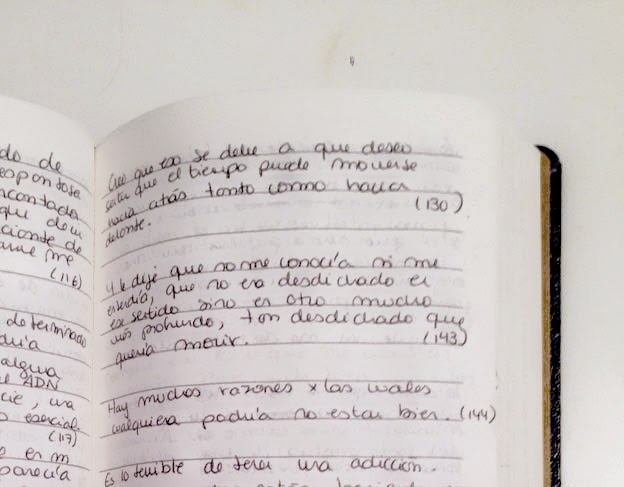 do de
contada
que deu
ciente de
me
(116)
determinado
alguna
ADN
cie, una
esencial.
(117)
e en m
parecía
Creo que eso se debe a que deseo
sentir que el tiempo puede moverse
hacia atrás tanto como hacia
delante. (130)
Y le dijé que no me conocía ni me
entendía, que no era desdichado en
ese sentido sino en otro mucho
más profundo, tan desdichado que
quería morir. (143)
Hay muchas razones x las cuales
cualquiera podría no estar bien. (144)
Es lo terrible de tener una adicción